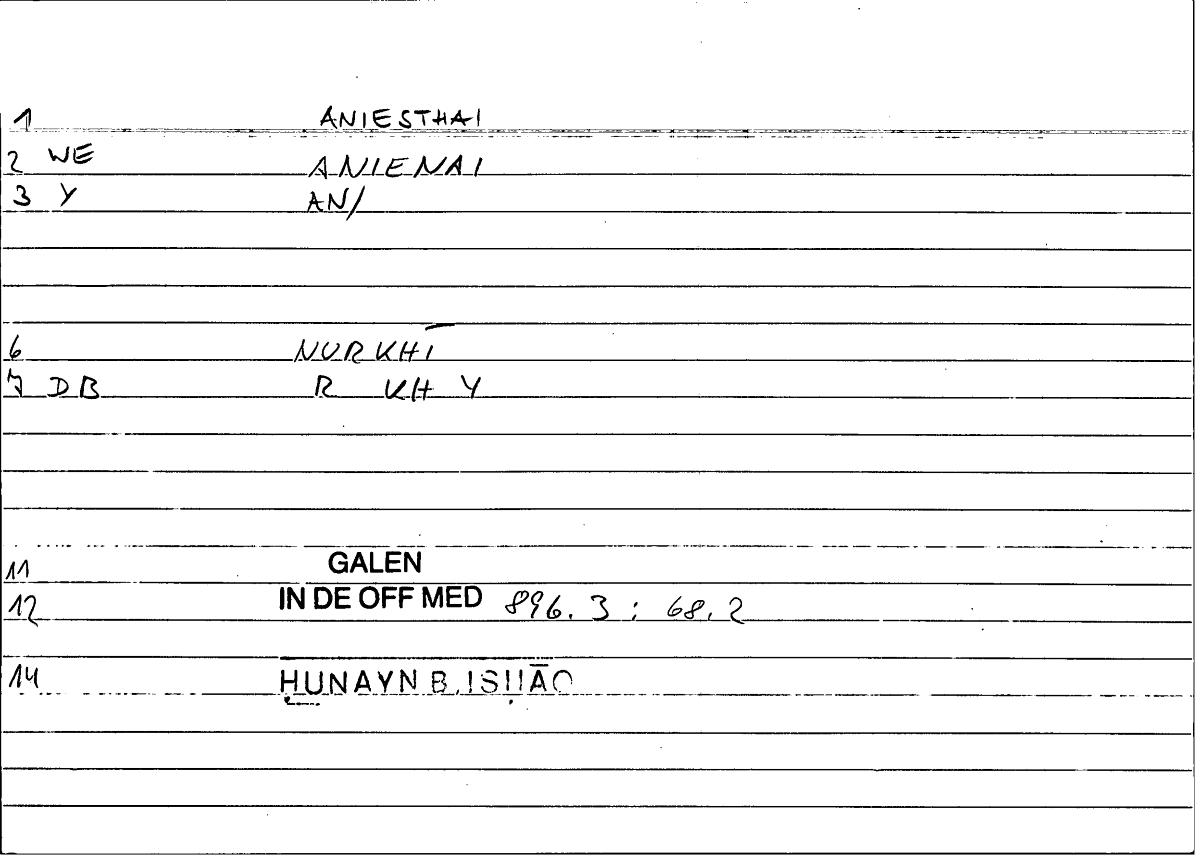 1 ANIESTHAI
2 WE ANIENAI
3 Y AN/
6 NURKHĪ
7 DB R KH Y
11 GALEN
12 IN DE OFF MED 896.3 : 68.2
14 ḤUNAYN B. ISḤĀQ